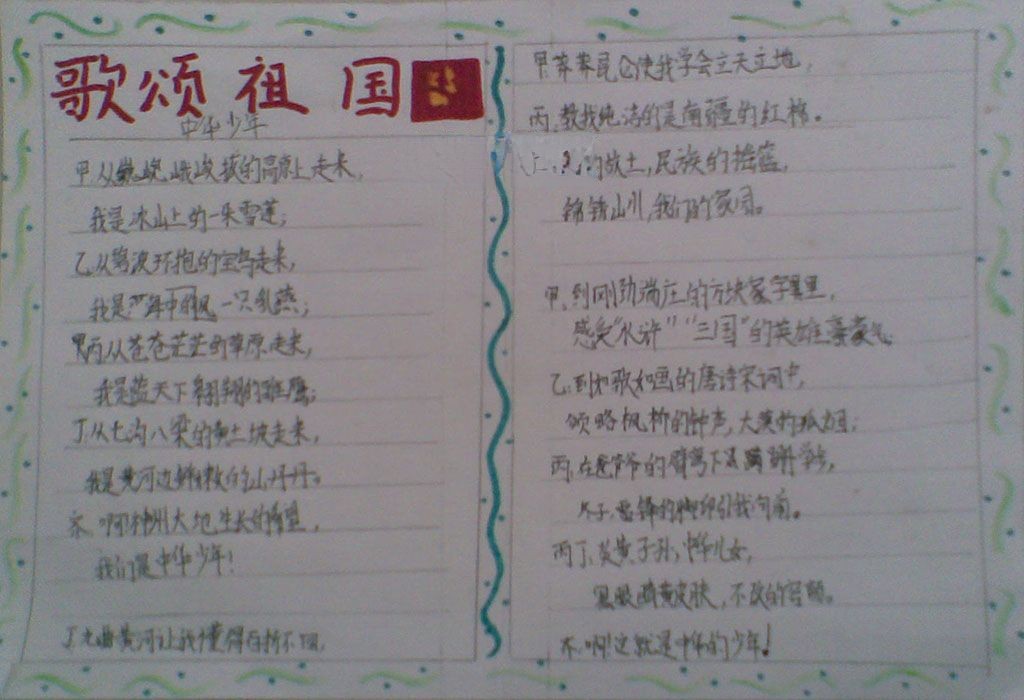 歌颂祖国
中华少年
甲.从巍峨峻拔的高原上走来,
我是冰山上的一朵雪莲;
乙.从碧波环抱的宝岛走来,
我是 中的一只乳燕;
丙.从苍苍茫茫的草原走来,
我是蓝天下翱翔的雏鹰;
丁.从七沟八梁的黄土坡走来,
我是黄河边鲜嫩的山丹丹。
齐.啊!神州大地生长的希望,
我们是中华少年!
丁.九曲黄河让我懂得百折不回,
甲.莽莽昆仑使我学会立天立地,
丙.教我纯洁的是南疆的红棉。
的故土,民族的摇篮,
锦绣山川,我们的家园。
甲.到刚劲端庄的方块家字里,
感受"水浒""三国"的英雄豪气
乙.到如歌如画的唐诗宋词中,
领略枫桥的钟声,大漠的孤烟;
丙.在爷爷的臂弯下
雷锋的脚印引我向前。
丙丁.炎黄子孙,中华儿女,
黑眼睛黄皮肤,不改的容颜。
齐.啊!这就是中华的少年!